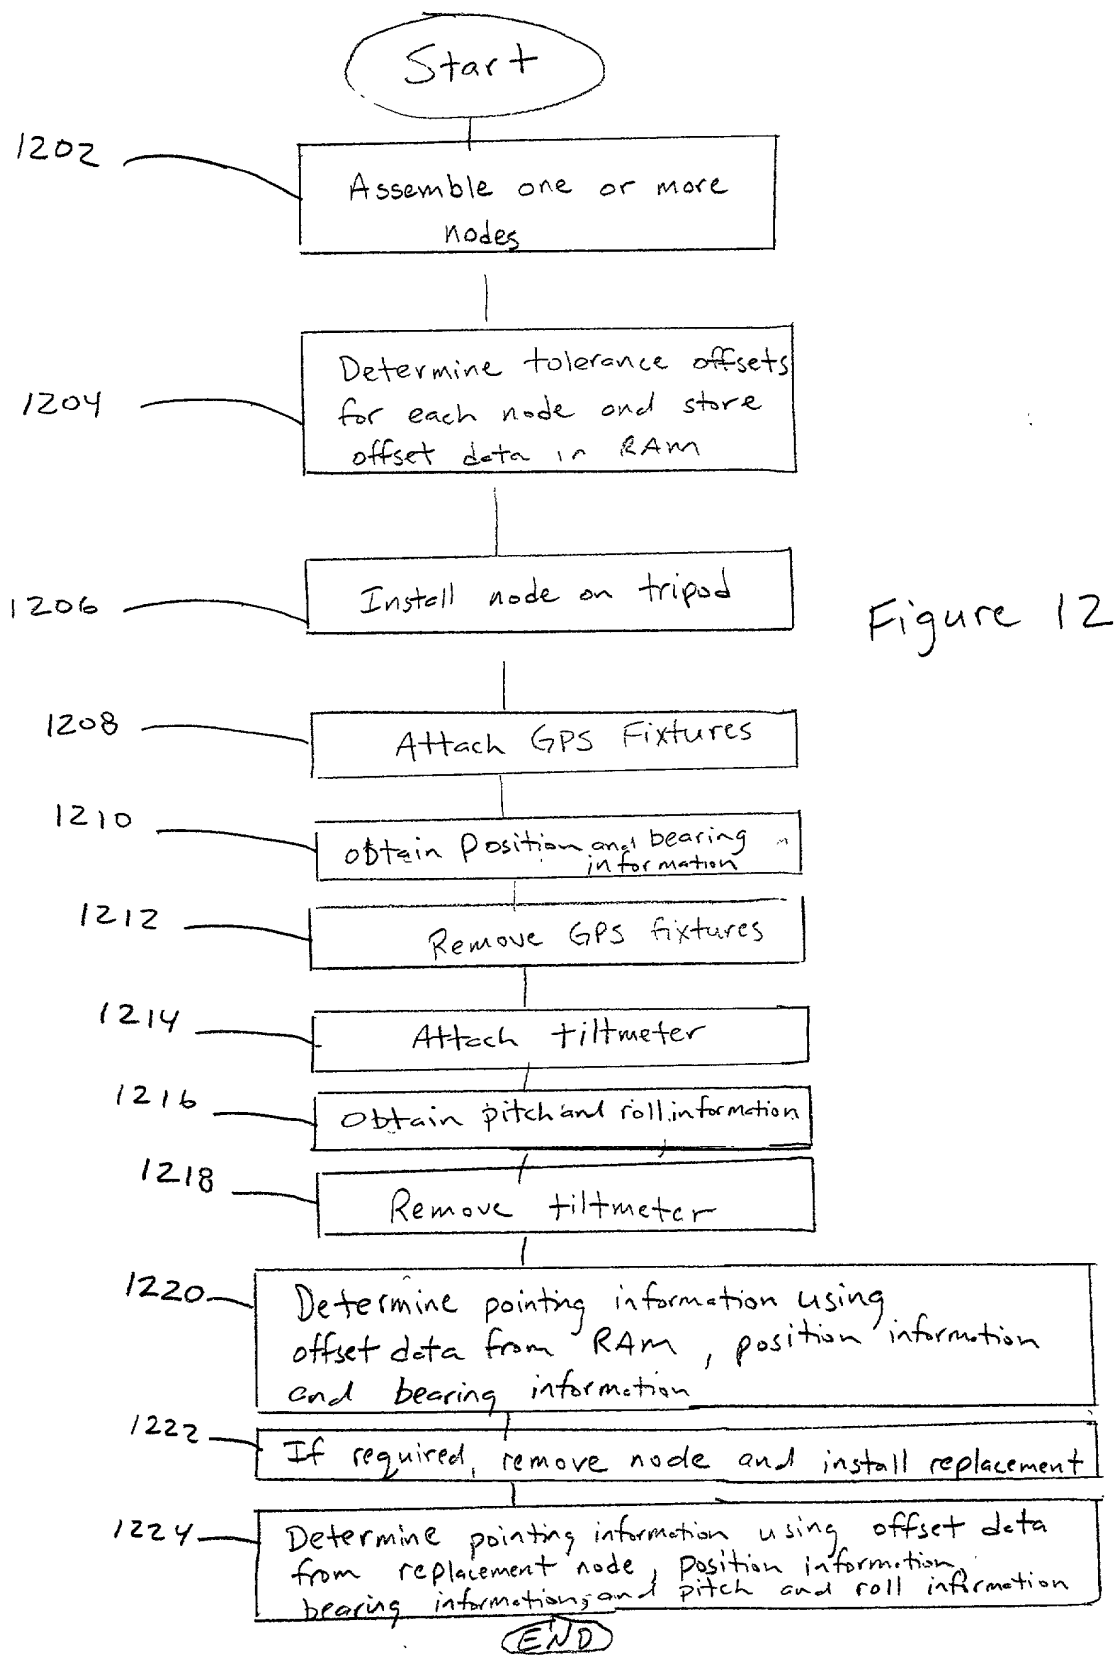 Start
1202
Assemble one or more
nodes
1204
Determine tolerance offsets
for each node and store
offset data in RAM
1206
Install node on tripod
Figure 12
1208
Attach GPS Fixtures
1210
Obtain Position and bearing
information
1212
Remove GPS fixtures
1214
Attach tiltmeter
1216
Obtain pitch and roll information
1218
Remove tiltmeter
1220
Determine pointing information using
offset data from RAM, position information
and bearing information
1222
If required, remove node and install replacement
1224
Determine pointing information using offset data
from replacement node, position information,
bearing information, and pitch and roll information
END